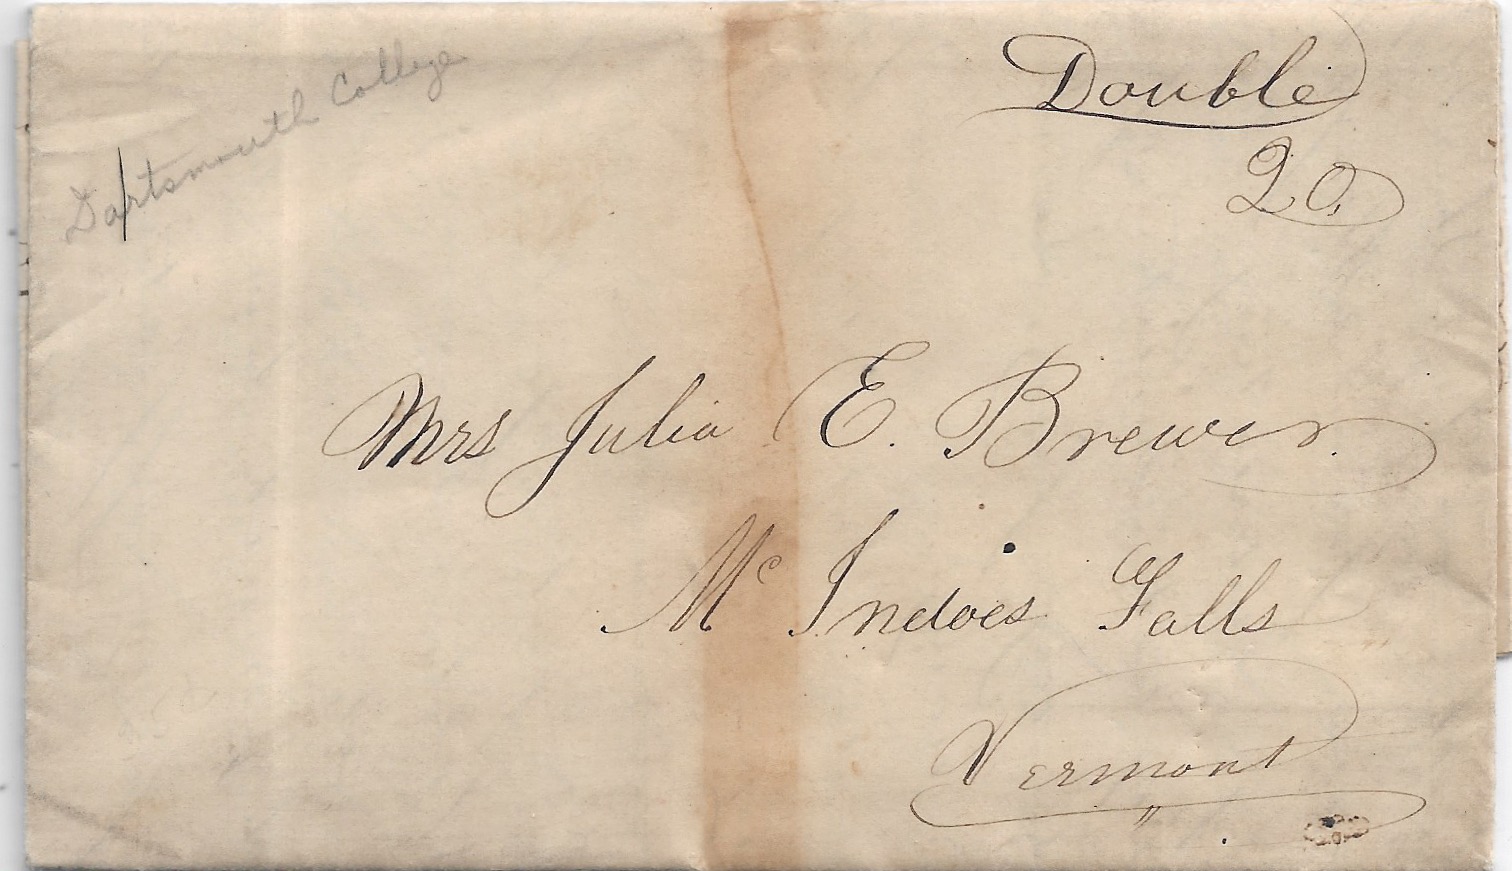 Dartsmouth College
Double
20,
Mrs Julia E. Brewer.
Mc Indoes Falls
Vermont
"